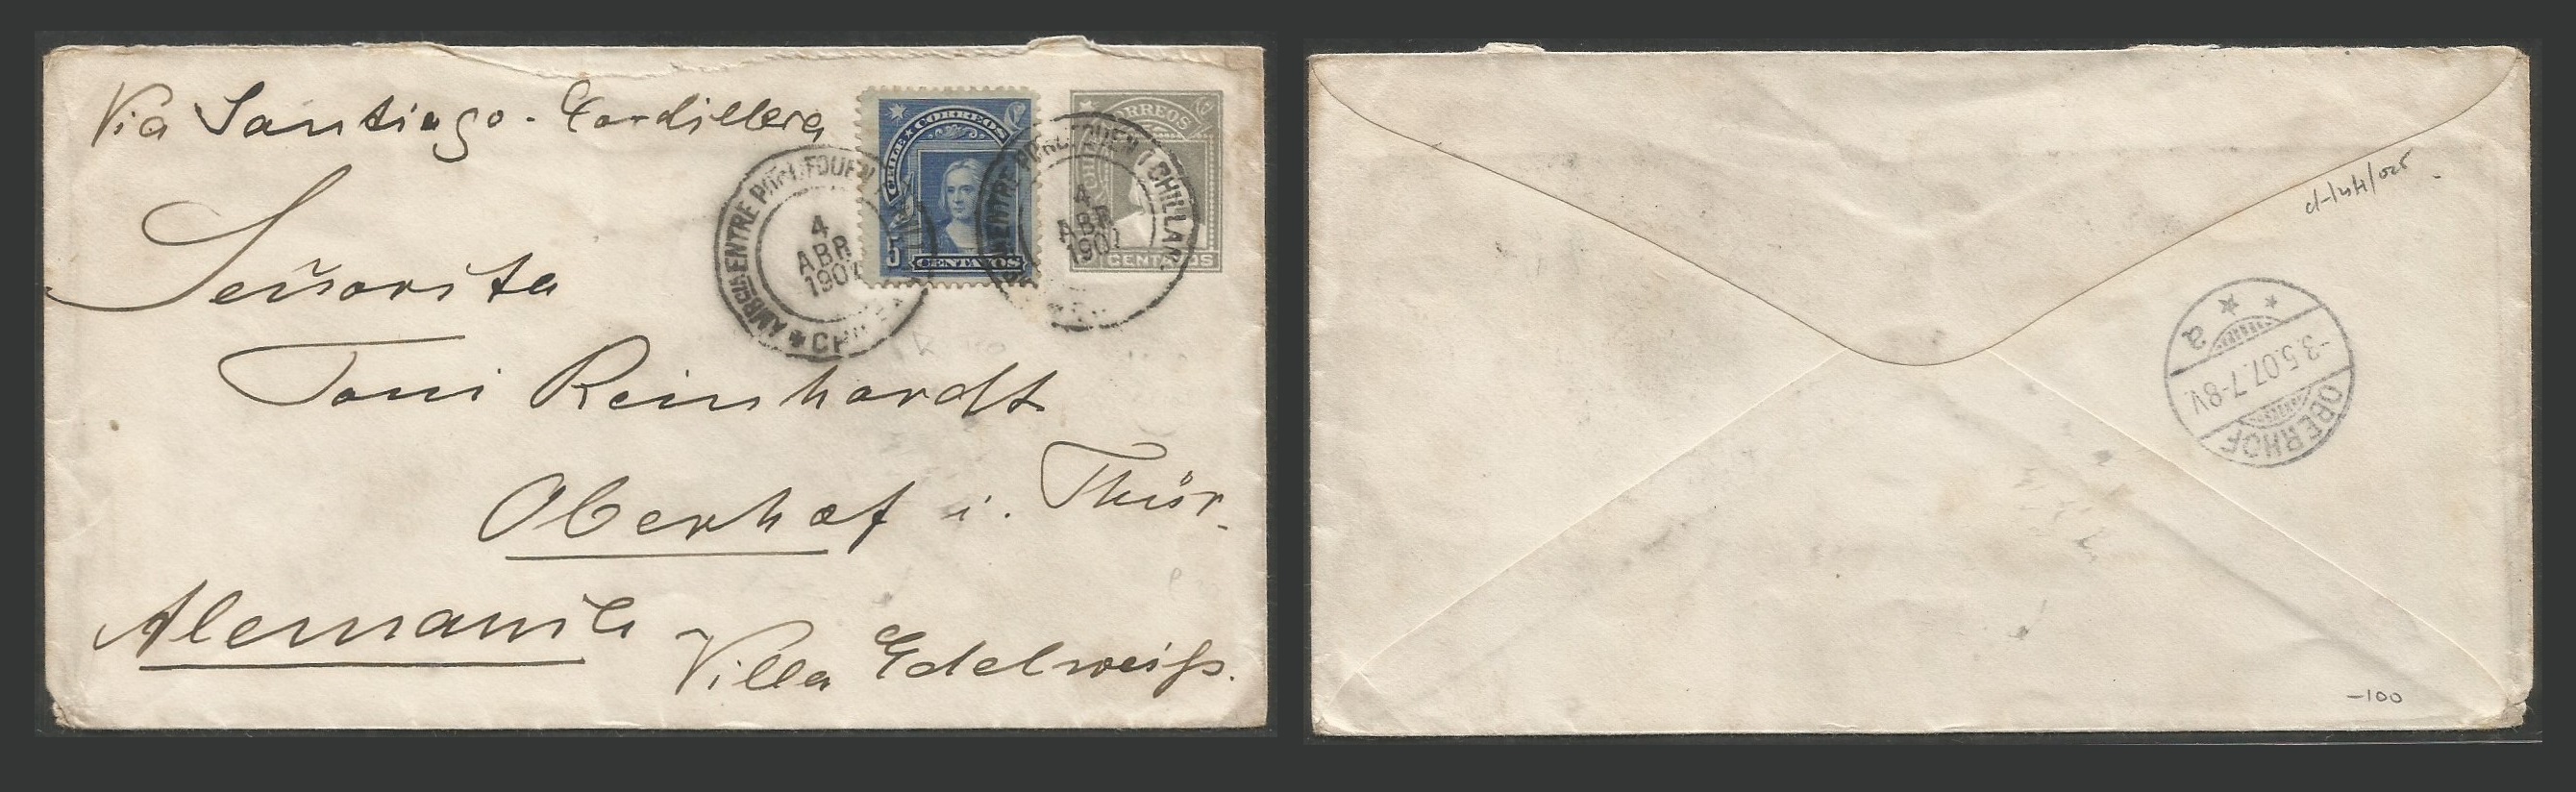 Via Santiago - Cordillera
Señorita
Toni Reinhardt
Oberhof i. Thür.
Alemania
Villa Edelweiß.
CHILE ★ CORREOS
5
CENTAVOS
CORREOS
CENTAVOS
ENTRE
4
ABR
1907
ENTRE
CHILLAN
4
ABR
1907
OBERHOF
-3.5.07.7-8V.
a
-100